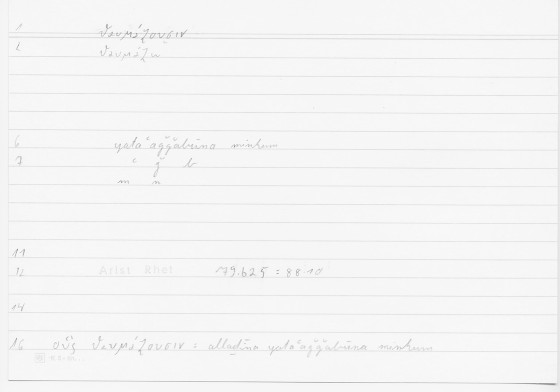 1 θαυμάζουσιν
2 θαυμάζω
6 yataʿaǧǧabūna minhum
7 ʿ ǧ b
m n
11
12 Arist Rhet 79.6 2 5 = 88.10
14
16 οὓς θαυμάζουσιν = alladīna yataʿaǧǧabūna minhum